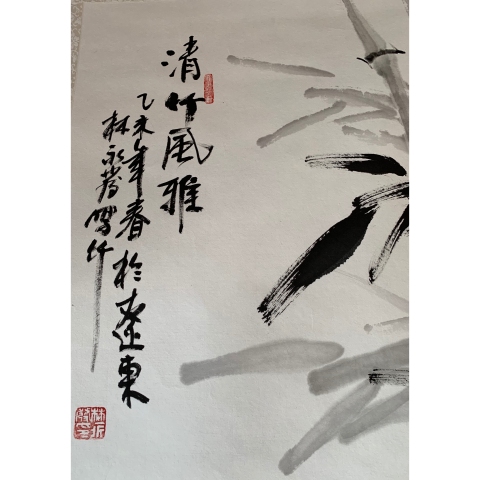 清竹風雅
乙未年春於遼東
林永發寫竹